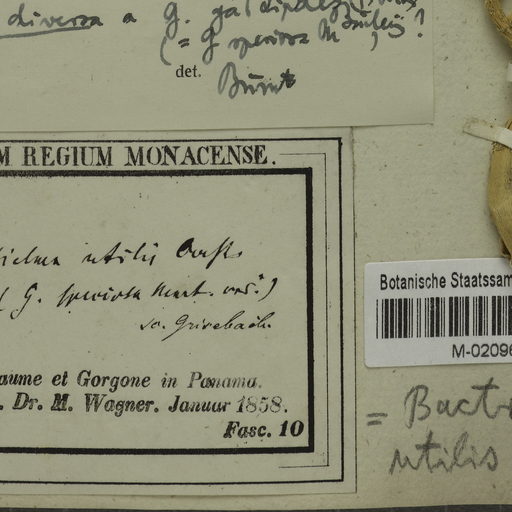 diversa a G.
(= G speciosa M
det.
Burret
M REGIUM MONACENSE.
ielma utilis Oerst.
G. speciosa Mart. var.)
sc. Grisebach.
aume et Gorgone in Panama.
. Dr. M. Wagner. Januar 1858.
Fasc. 10
Botanische Staatssam
M-02096
= Bactr
utilis